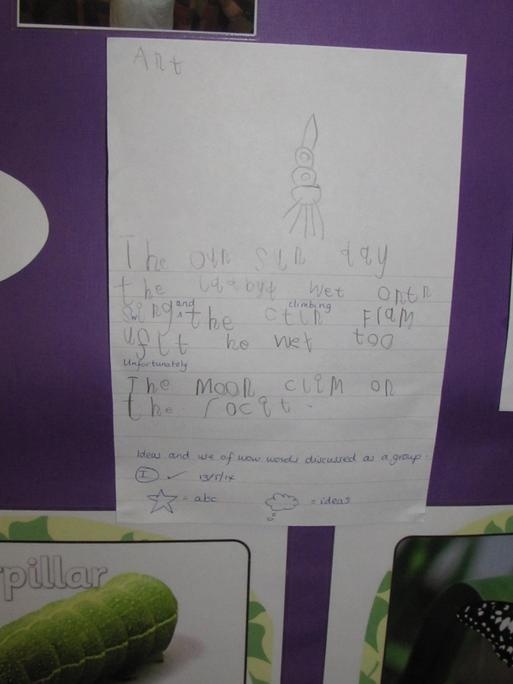 Art
The oun sun day
the laabyd wet ontn
swing and the ctin Fram
ufit he wet too
climbing
Unfortunately
The Moon clim on
the rocat.
Ideas and use of wow words discussed as a group.
I ✓ 13/5/14
= abc = ideas
pillar